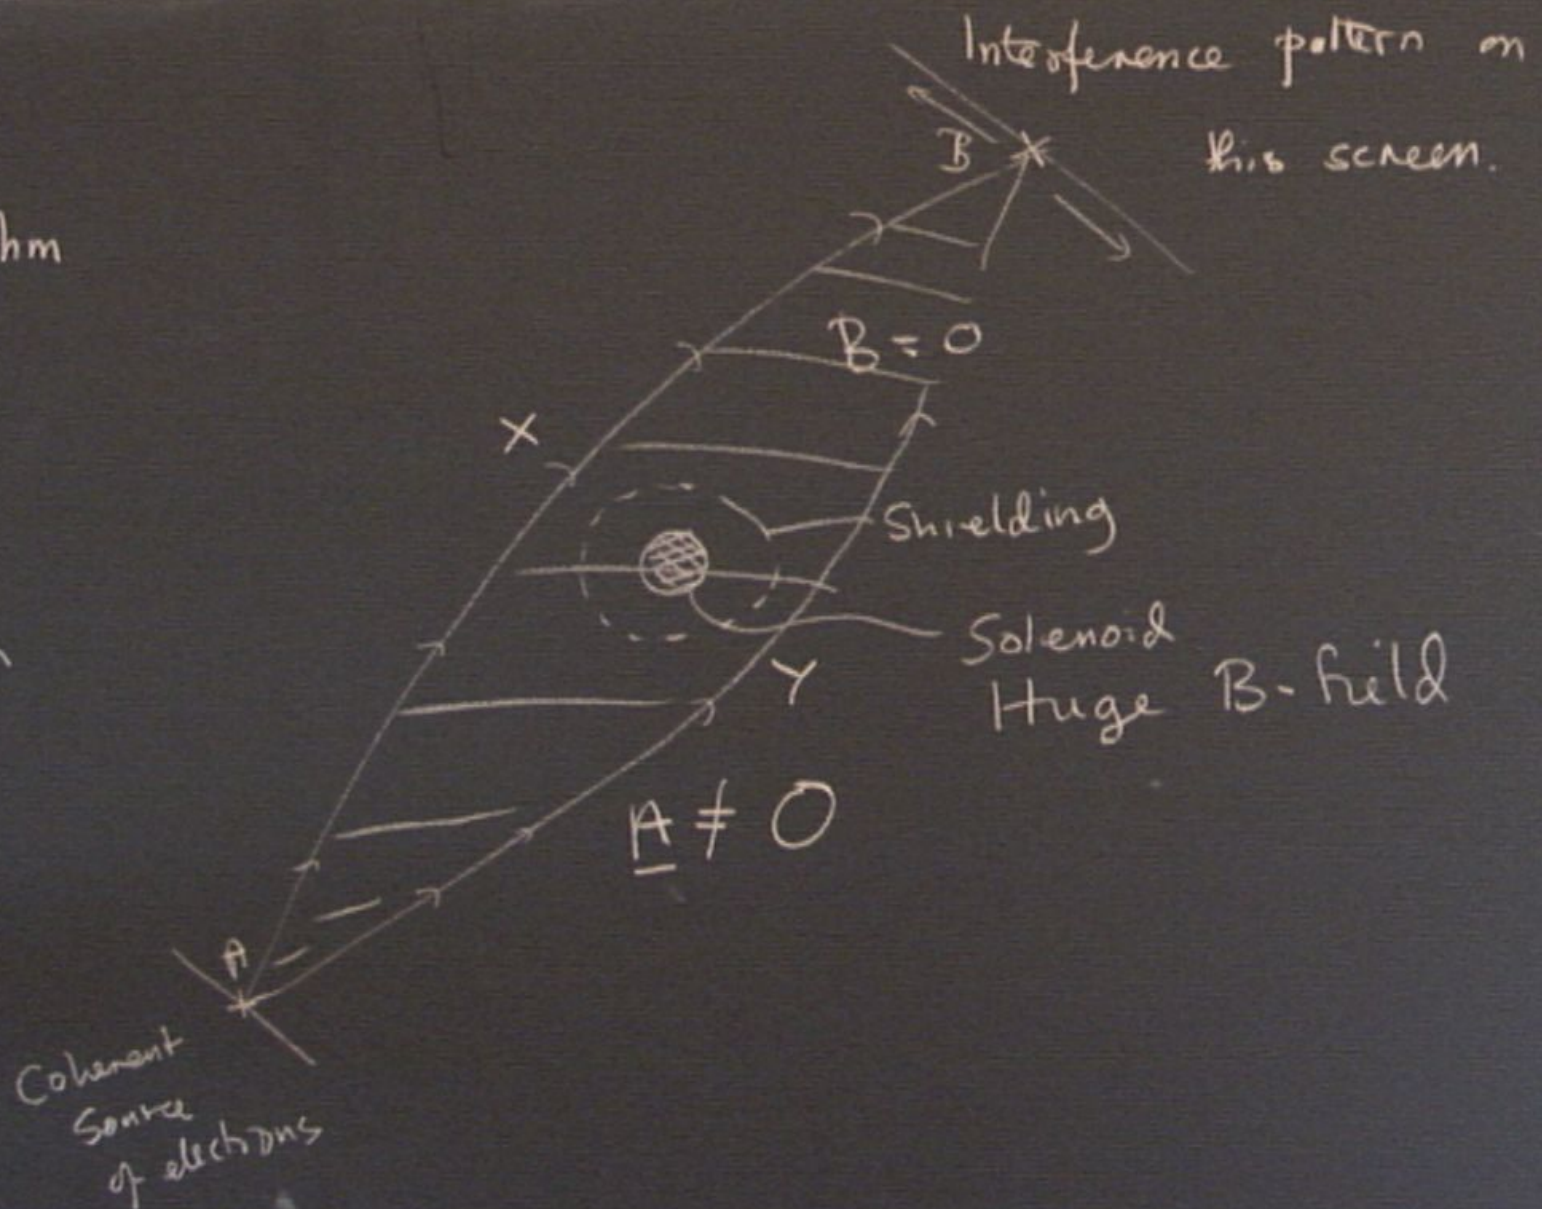 Interference pattern on
this screen.
B
hm
B = 0
X
Shielding
Solenoid
Huge B-field
Y
A ≠ 0
A
Coherent
Source
of electrons